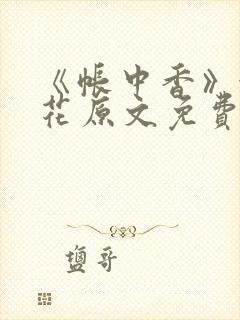 《帐中香》
花原文免費
塩哥